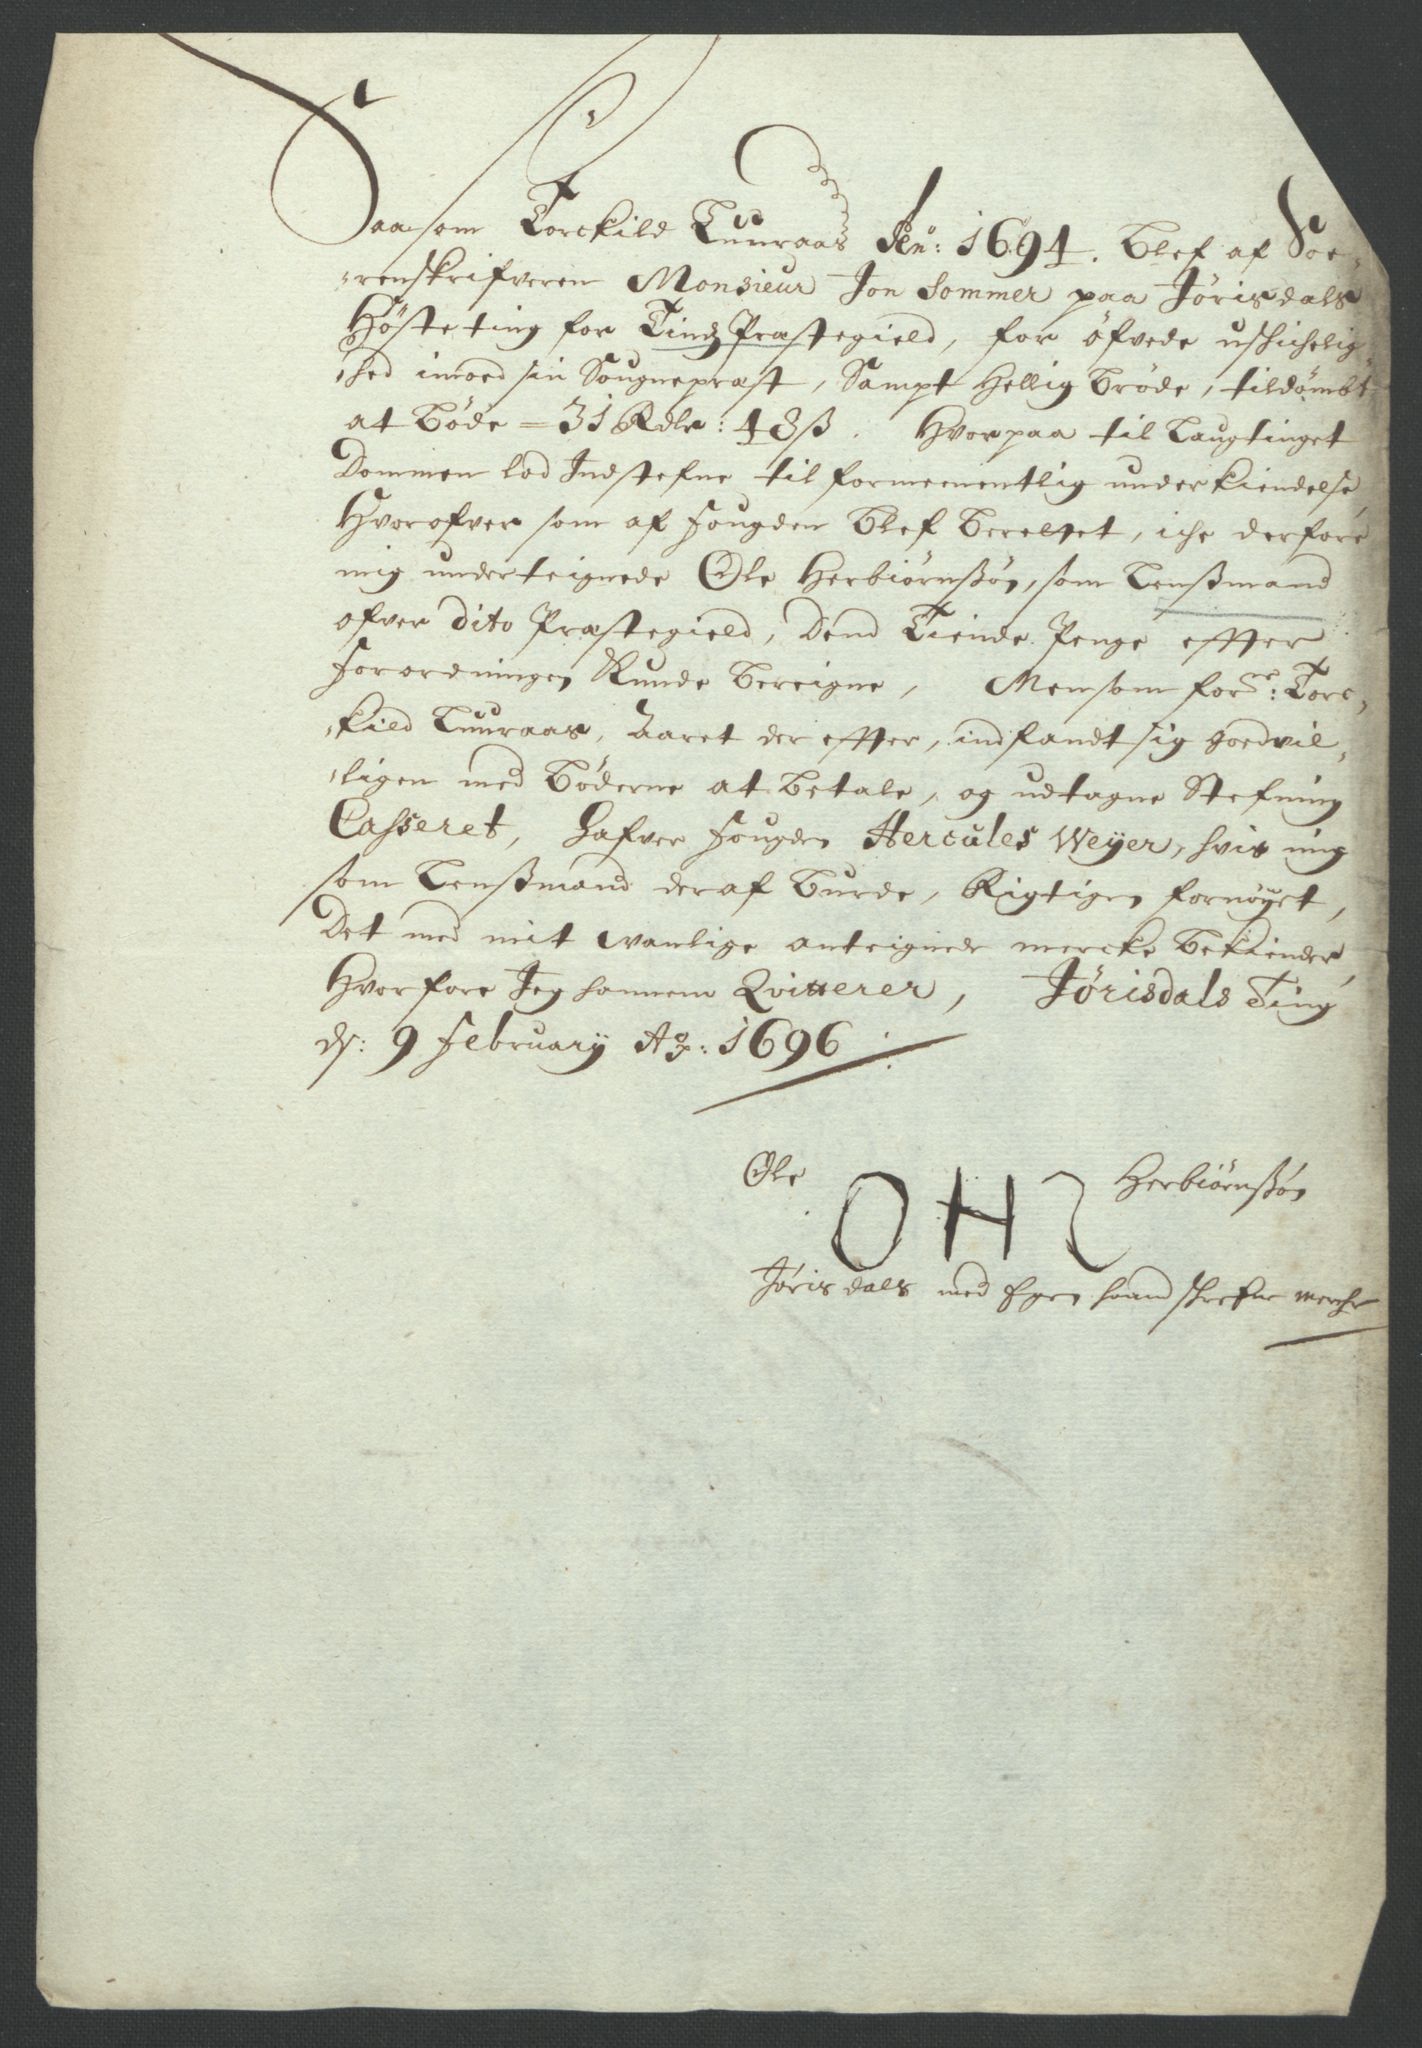 Saa som Torckild Luuraas Añ: 1694. blef af Soe-
renskrifveren Monsieur Jon Sommer paa Jörisdals
Hösteting for Tindz Præstegield, for öfvede uschichelig-
hed imoed sin Sougnepræst, Sampt Hellig bröde, tildömbt
at böde = 31 Rdlr: 48 ß. Hvorpaa til Laugtinget
Dommen lod Indstefne til formeenentlig underkiendelse
Hvorofver som af fougden blef berettet, iche derfore
mig underteignede Ole Herbiörnßön, som Lenßmand
ofver dito Præstegield, dend Tiende Penge effter
forordningen Kunde bereigne, Men som for.ne: Torc-
kild Luuraas, Aaret der effter, indfandt sig goedvil-
ligen med böderne at betale, og udtagne Stefning
Casseret, Hafver fougden Hercules Weyer, hvis mig
som Lenßmand deraf burde, Rigtigen fornöyet,
Det med mit wanlige anteignede mercke bekiender
Hvorfore Jeg hannem Qvitterer, Jörisdals Ting
ds: 9 February Ao: 1696
Ole OHS Herbiörnßön
Jörisdals med Egen haand schrefne merche